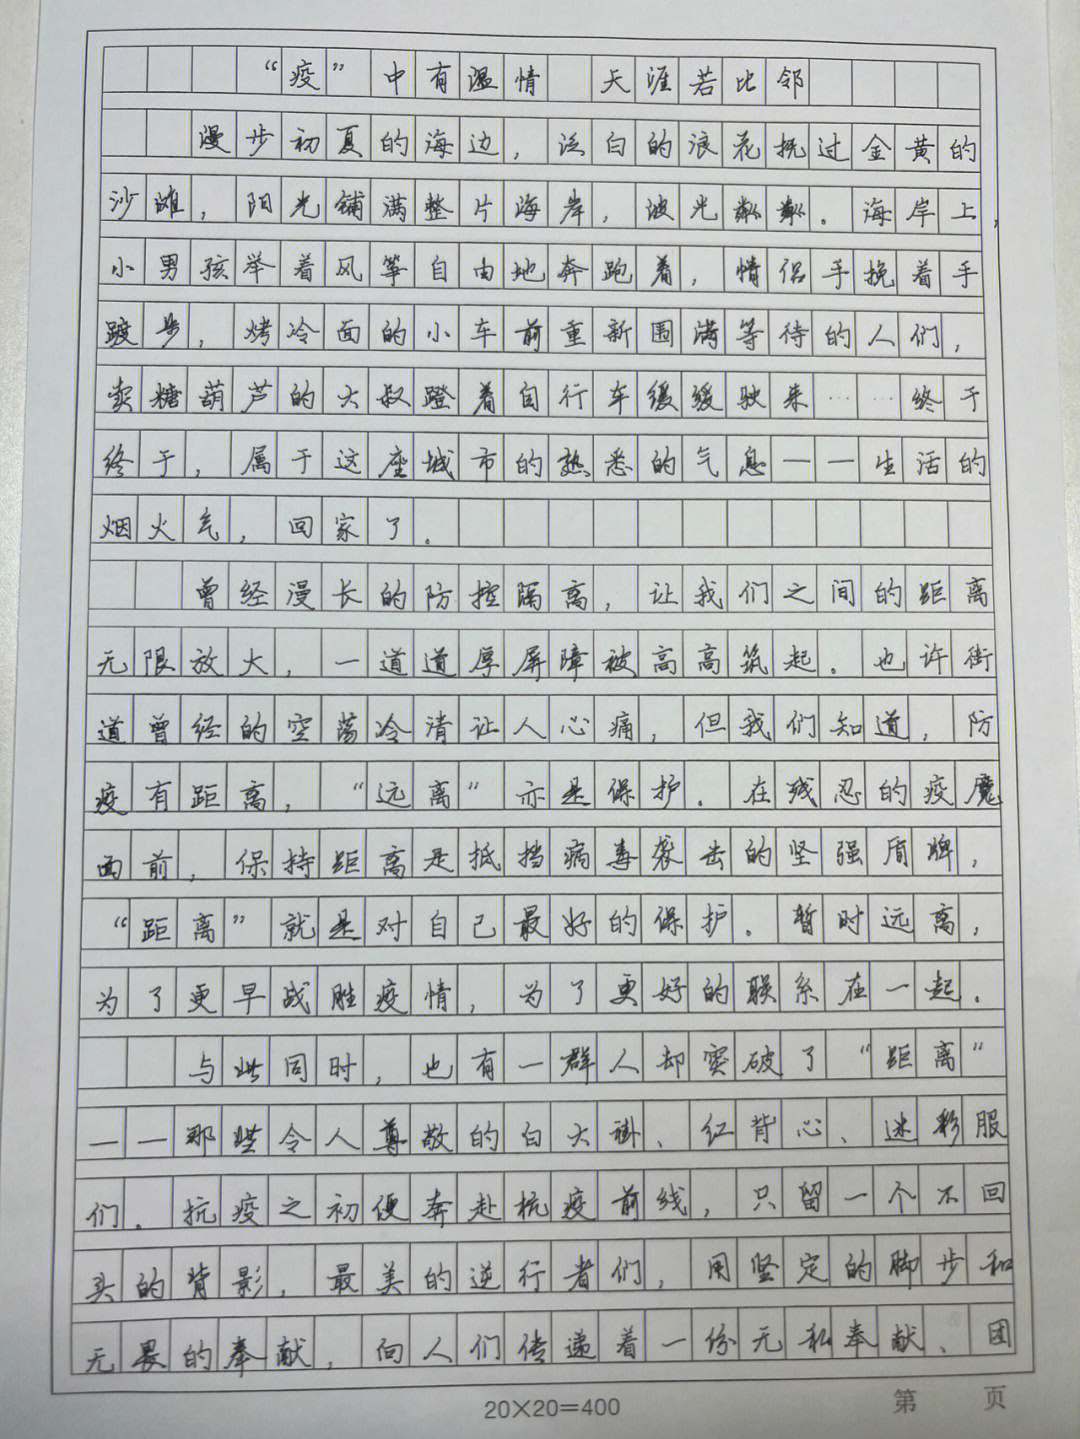 “疫”中有温情 天涯若比邻
漫步初夏的海边，泛白的浪花抚过金黄的
沙滩，阳光铺满整片海岸，波光粼粼。海岸上，
小男孩举着风筝自由地奔跑着，情侣手挽着手
踱步，烤冷面的小车前重新围满等待的人们，
卖糖葫芦的大叔蹬着自行车缓缓驶来……终于
终于，属于这座城市的熟悉的气息——生活的
烟火气，回家了。
曾经漫长的防控隔离，让我们之间的距离
无限放大，一道道厚屏障被高高筑起。也许街
道曾经的空荡冷清让人心痛，但我们知道，防
疫有距离，“远离”亦是保护。在残忍的疫魔
面前，保持距离是抵挡病毒袭击的坚强盾牌，
“距离”就是对自己最好的保护。暂时远离，
为了更早战胜疫情，为了更好的联系在一起。
与此同时，也有一群人却突破了“距离”
——那些令人尊敬的白大褂、红背心、迷彩服
们。抗疫之初便奔赴抗疫前线，只留一个不回
头的背影，最美的逆行者们，用坚定的脚步和
无畏的奉献，向人们传递着一份无私奉献、团
20×20=400
第 页